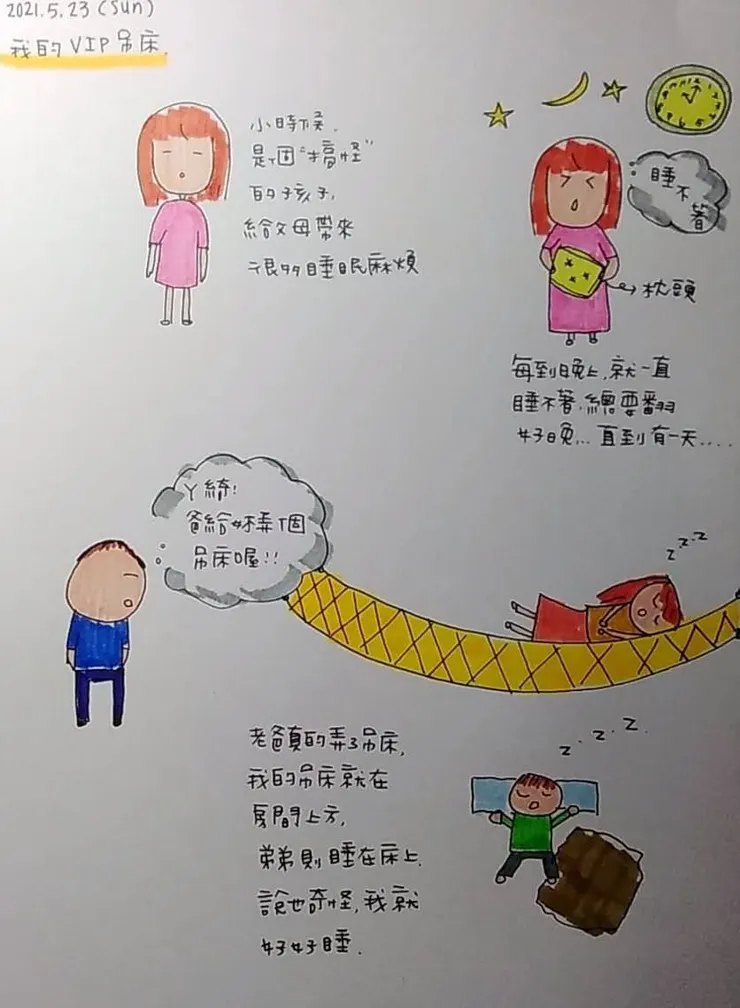 2021.5.23(Sun)
我的VIP吊床.
小時候,
是個"搞怪"
的孩子,
給父母帶來
很多睡眠麻煩
睡不著
枕頭
每到晚上,就一直
睡不著,總要翻
好晚...直到有一天....
ㄚ綺!
爸給妳弄個
吊床喔!!
z z z
老爸真的弄了吊床,
我的吊床就在
房間上方,
弟弟則睡在床上.
說也奇怪,我就
好好睡.
z. z. z.